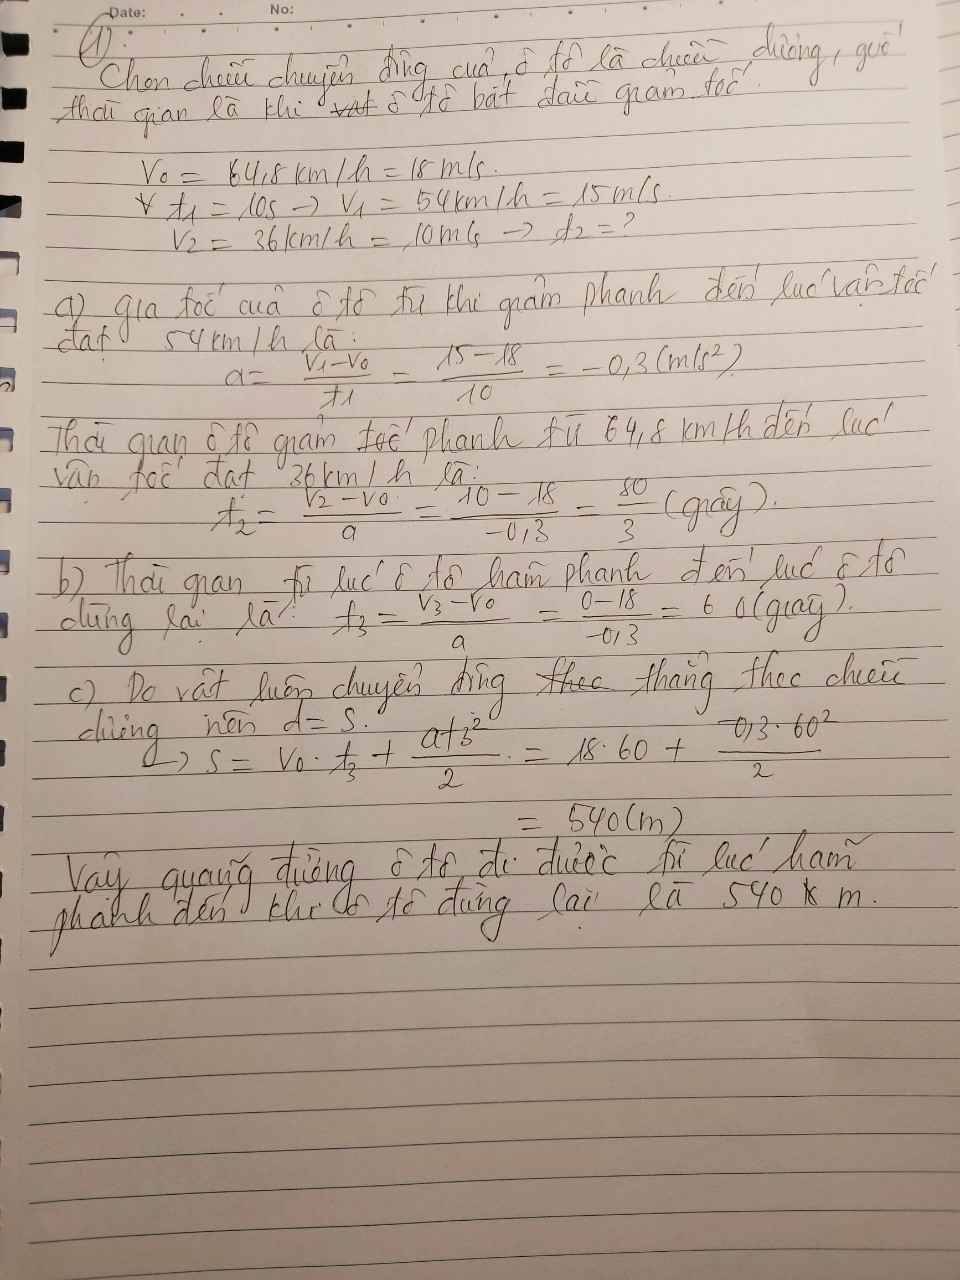 Date: No:
1)
Chọn chiều chuyển động của ô tô là chiều dương, gốc
thời gian là khi vật ô tô bắt đầu giảm tốc.
V₀ = 64,8 km/h = 18 m/s.
t₁ = 10s → V₁ = 54km/h = 15 m/s.
V₂ = 36 km/h = 10m/s → t₂ = ?
a) gia tốc của ô tô từ khi giảm phanh đến lúc vận tốc
đạt 54 km/h là:
a = (V₁ - V₀)/t₁ = (15 - 18)/10 = -0,3 (m/s²)
Thời gian ô tô giảm tốc phanh từ 64,8 km/h đến lúc
vận tốc đạt 36km/h là:
t₂ = (V₂ - V₀)/a = (10 - 18)/(-0,3) = 80/3 (giây).
b) Thời gian từ lúc ô tô hãm phanh đến lúc ô tô
dừng lại là: t₃ = (V₃ - V₀)/a = (0 - 18)/(-0,3) = 60 (giây).
c) Do vật luôn chuyển động theo thẳng theo chiều
dương nên d = S.
→ S = V₀ · t₃ + at₃²/2 = 18 · 60 + (-0,3 · 60²)/2
= 540 (m)
Vậy quãng đường ô tô đi được từ lúc hãm
phanh đến khi ô tô dừng lại là 540 m.